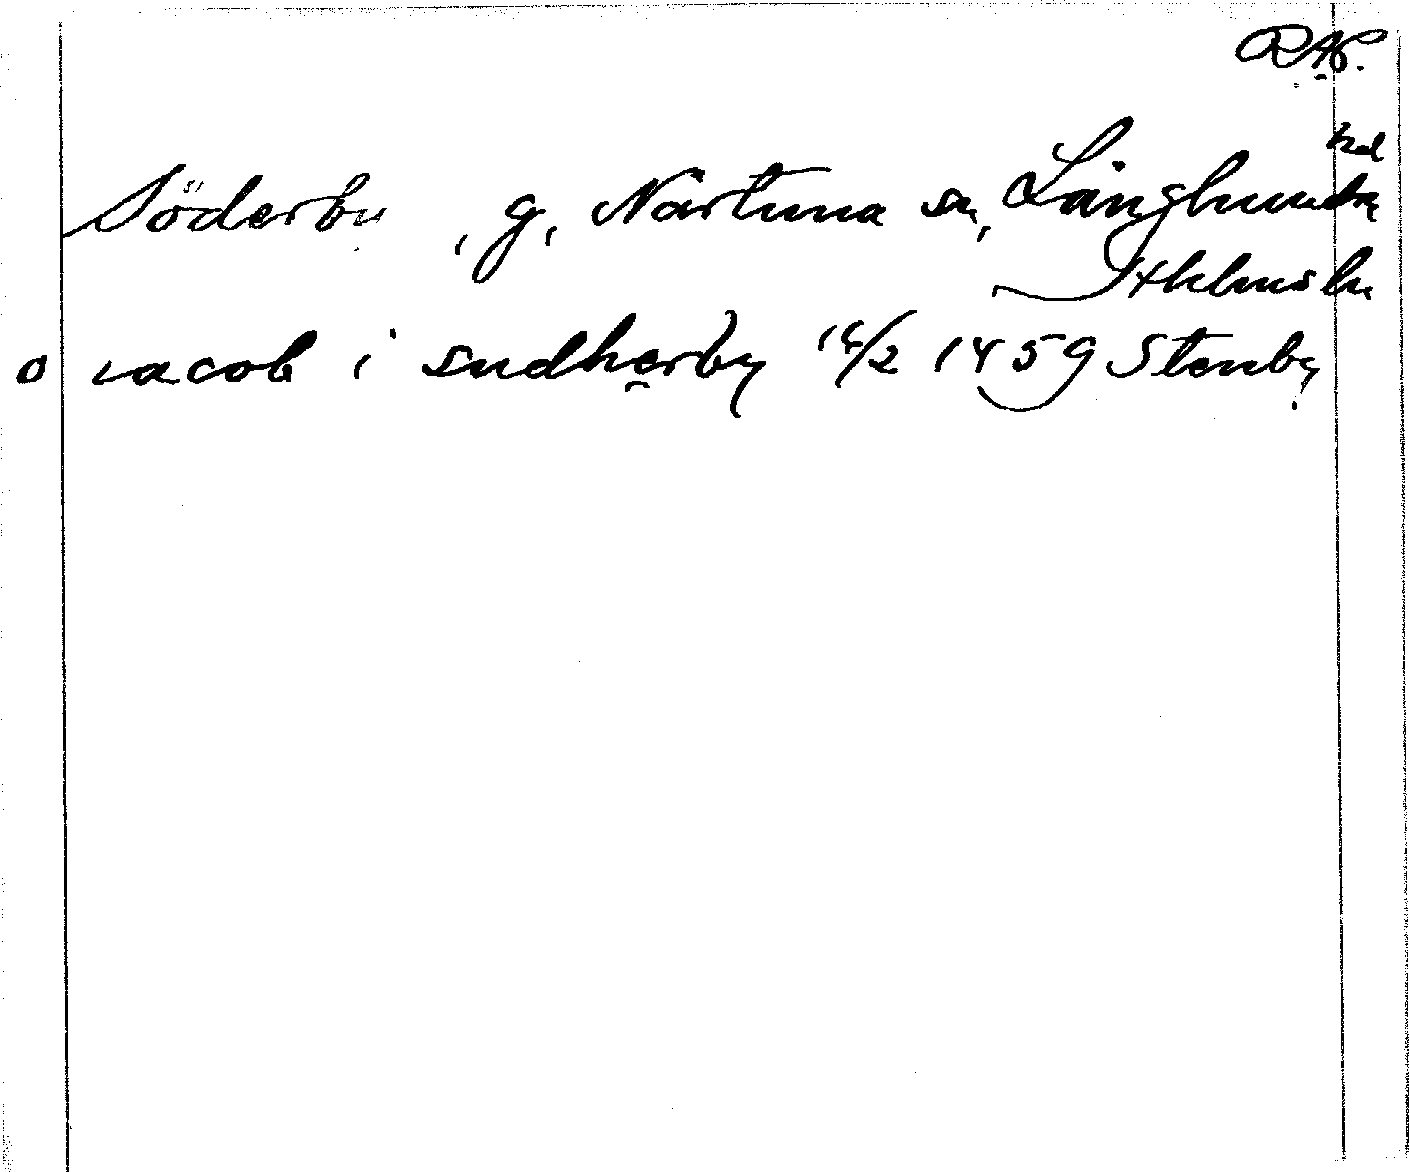 RAP.
Söderby, g, Närtuna sn, Långhundra hd
Sthlms ln
o iacob i sudherby 14/2 1459 Stenby